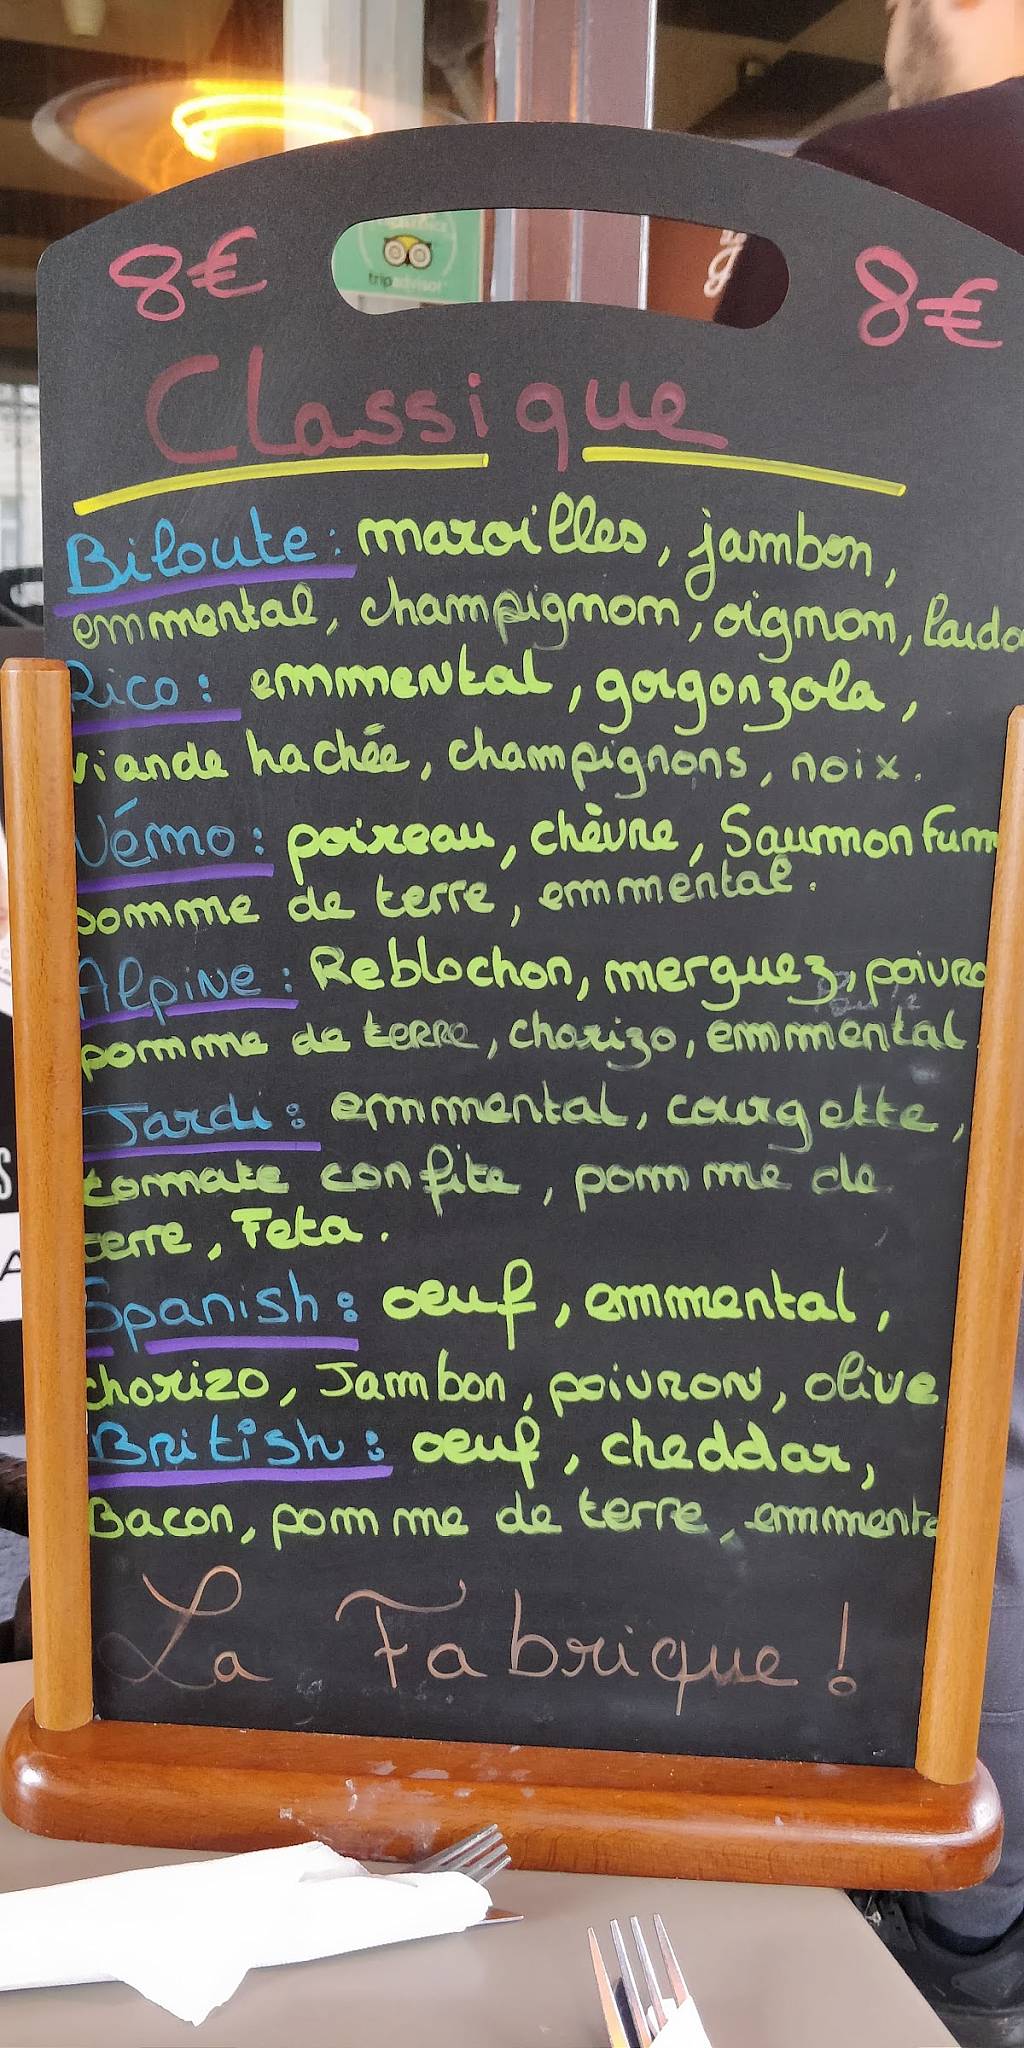 tripadvisor
8€ 8€
Classique
Biloute: maroilles, jambon,
emmental, champignom, oignom, lardo
Rico: emmental, gorgonzola,
viande hachée, champignons, noix.
Vémo: poireau, chèvre, Saumon Fum
pomme de terre, emmental.
Alpine: Reblochon, merguez, poivro
pomme de terre, chorizo, emmental
Jardi: emmental, courgette,
tomate confite, pomme de
terre, Feta.
Spanish: oeuf, emmental,
chorizo, Jambon, poivron, olive
British: oeuf, cheddar,
Bacon, pomme de terre, emmenta
La Fabrique!